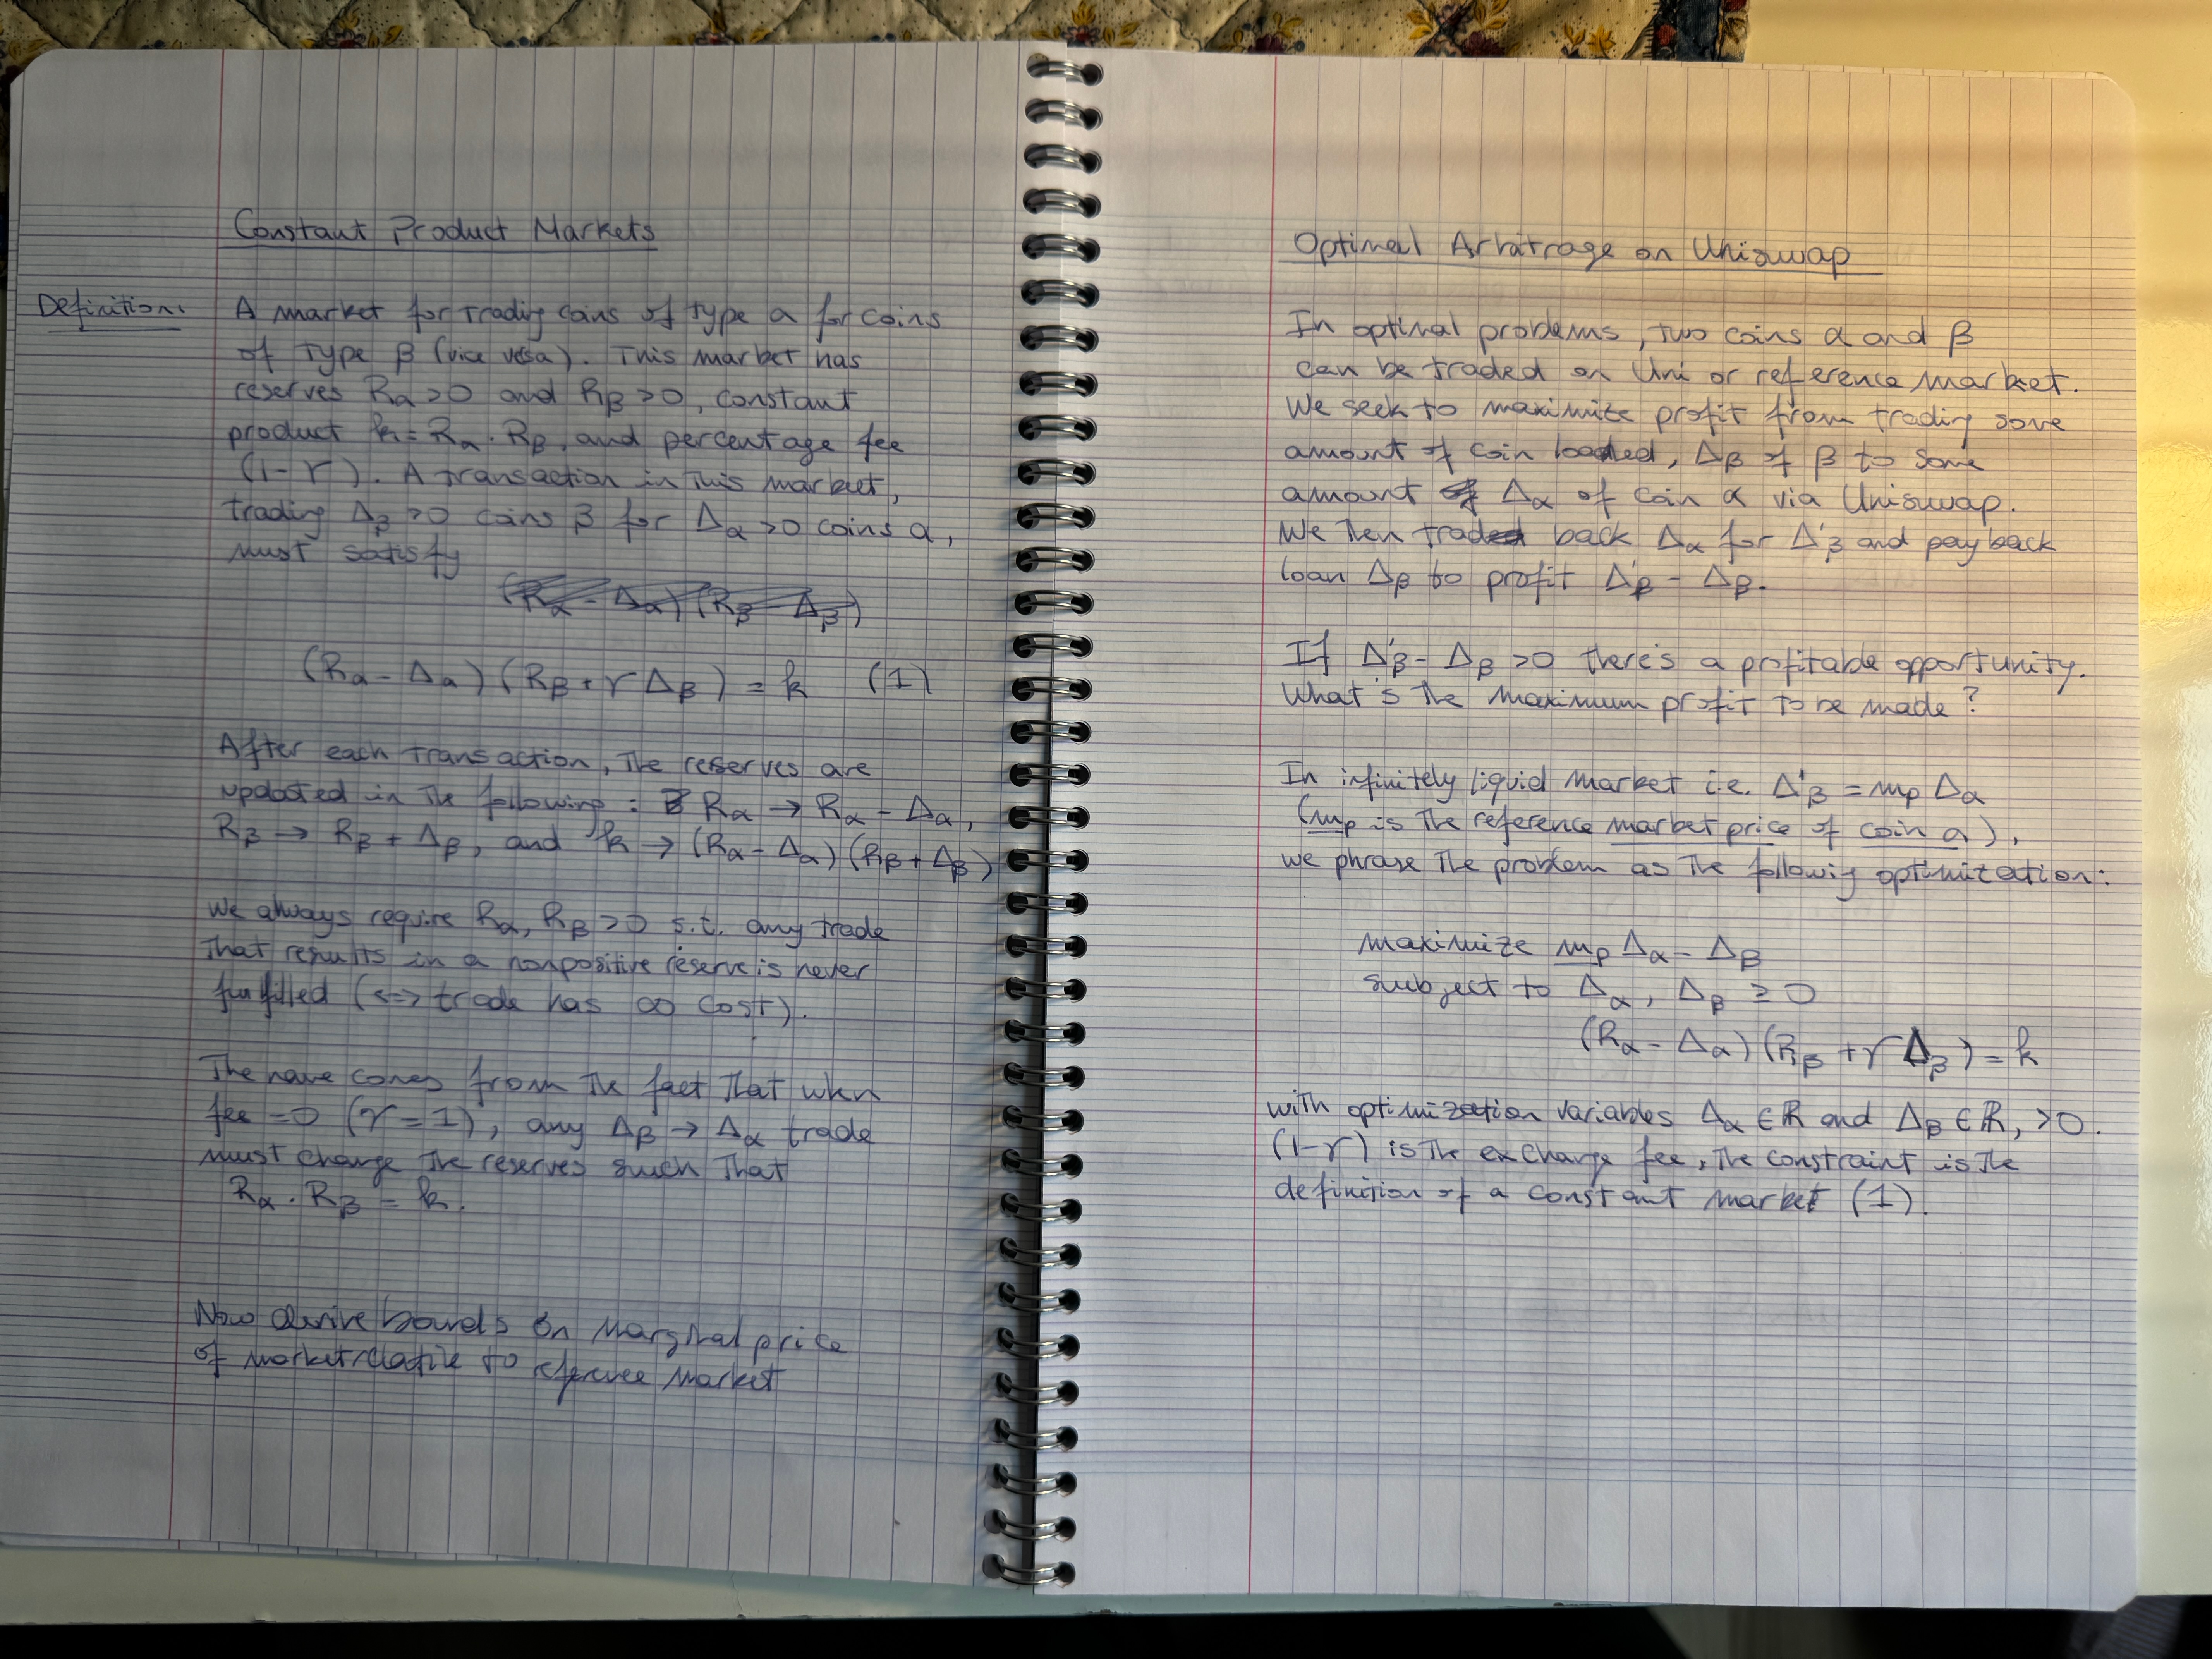 Constant Product Markets
Definition: A market for trading coins of type α for coins
of type β (vice vesa). This market has
reserves Rα >0 and Rβ >0, constant
product k = Rα · Rβ, and percentage fee
(1-γ). A transaction in this market,
trading Δβ >0 coins β for Δα >0 coins α,
must satisfy
(Rα - Δα) (Rβ - Δβ)
(Rα - Δα) (Rβ + γ Δβ) = k (1)
After each transaction, the reserves are
updated in the following : Rα → Rα - Δα,
Rβ → Rβ + Δβ, and k → (Rα - Δα) (Rβ + Δβ)
We always require Rα, Rβ >0 s.t. any trade
that results in a nonpositive reserve is never
fulfilled (<=> trade has ∞ cost).
The name comes from the fact that when
fee =0 (γ = 1), any Δβ → Δα trade
must change the reserves such that
Rα · Rβ = k.
Now derive bounds on marginal price
of market relative to reference market
Optimal Arbitrage on Uniswap
In optimal problems, two coins α and β
can be traded on Uni or reference market.
We seek to maximize profit from trading some
amount of coin loaned, Δβ of β to some
amount Δα of coin α via Uniswap.
We then trade back Δα for Δ'β and pay back
loan Δβ to profit Δ'β - Δβ.
If Δ'β - Δβ >0 there's a profitable opportunity.
What's the maximum profit to be made?
In infinitely liquid market i.e. Δ'β = mp Δα
(mp is the reference market price of coin α),
we phrase the problem as the following optimization:
maximize mp Δα - Δβ
subject to Δα, Δβ ≥ 0
(Rα - Δα) (Rβ + γ Δβ) = k
with optimization variables Δα ∈ ℝ and Δβ ∈ ℝ, >0.
(1-γ) is the exchange fee, the constraint is the
definition of a constant market (1).